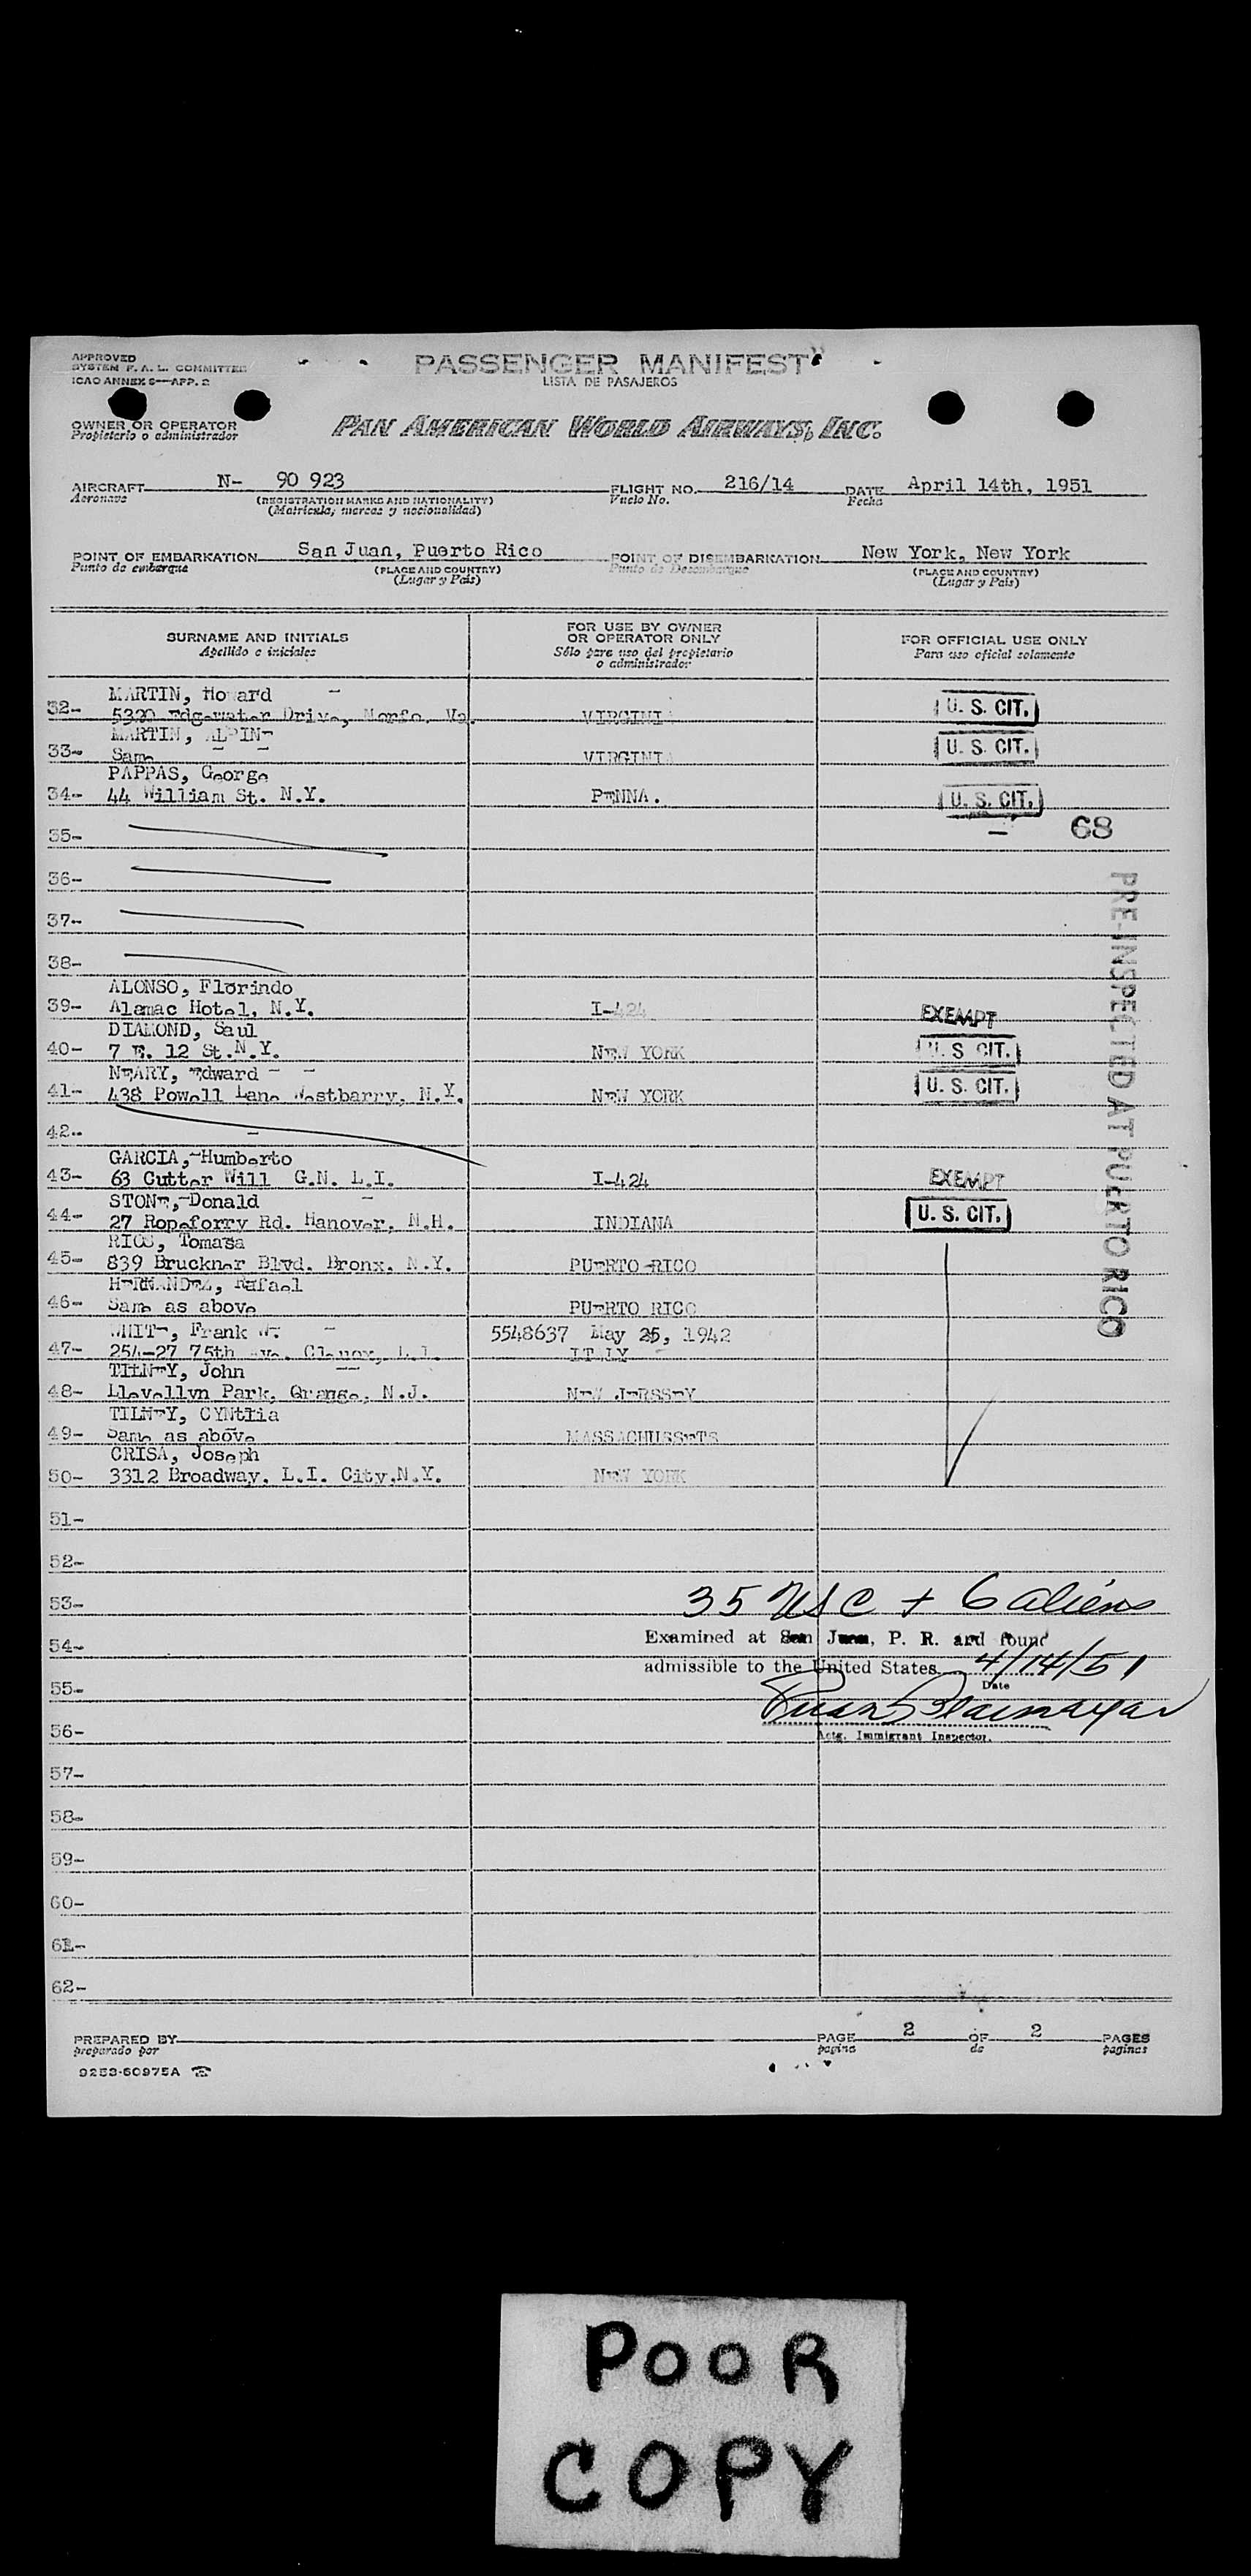 APPROVED
SYSTEM F. A. L. COMMITTEE
ICAO ANNEX 9—APP. 2
PASSENGER MANIFEST
LISTA DE PASAJEROS
OWNER OR OPERATOR
Propietario o administrador
PAN AMERICAN WORLD AIRWAYS, INC.
AIRCRAFT N- 90 923 FLIGHT NO. 216/14 DATE April 14th, 1951
Aeronave (REGISTRATION MARKS AND NATIONALITY) Vuelo No. Fecha
(Matrícula, marcas y nacionalidad)
POINT OF EMBARKATION San Juan, Puerto Rico POINT OF DISEMBARKATION New York, New York
Punto de embarque (PLACE AND COUNTRY) Punto de Desembarque (PLACE AND COUNTRY)
(Lugar y País) (Lugar y País)
SURNAME AND INITIALS
Apellido e iniciales
FOR USE BY OWNER
OR OPERATOR ONLY
Sólo para uso del propietario
o administrador
FOR OFFICIAL USE ONLY
Para uso oficial solamente
MARTIN, Howard
32- 5320 Edgewater Drive, Norfo. Va. VIRGINIA U. S. CIT.
MARTIN, ALPINE
33- Same VIRGINIA U. S. CIT.
PAPPAS, George
34- 44 William St. N.Y. PENNA. U. S. CIT.
35- 68
36-
37-
38-
ALONSO, Florindo
39- Alamac Hotel, N.Y. I-424 EXEMPT
DIAMOND, Saul
40- 7 E. 12 St.N.Y. NEW YORK U. S. CIT.
NEARY, Edward
41- 438 Powell Lane Westbarry, N.Y. NEW YORK U. S. CIT.
42-
GARCIA, Humberto
43- 63 Cutter Will G.N. L.I. I-424 EXEMPT
STONE, Donald
44- 27 Ropeforry Rd. Hanover, N.H. INDIANA U. S. CIT.
RIOS, Tomasa
45- 839 Bruckner Blvd. Bronx, N.Y. PUERTO RICO
HERNANDEZ, Rafael
46- Same as above PUERTO RICO
WHITE, Frank W. 5548637 May 25, 1942
47- 254-27 75th Ave. L.I. ITALY
TILNEY, John
48- Llewellyn Park, Orange, N.J. NEW JERSSEY
TILNEY, CYNthia
49- Same as above MASSACHUSSETS
CRISA, Joseph
50- 3312 Broadway, L.I. City,N.Y. NEW YORK
PRE-INSPECTED AT PUERTO RICO
51-
52-
53- 35 USC + 6 aliens
54- Examined at San Juan, P. R. and found
admissible to the United States 4/14/51
55- Date
56- Actg. Immigrant Inspector.
57-
58-
59-
60-
61-
62-
PREPARED BY PAGE 2 OF 2 PAGES
preparado por pagina de paginas
9253-60975A
POOR
COPY